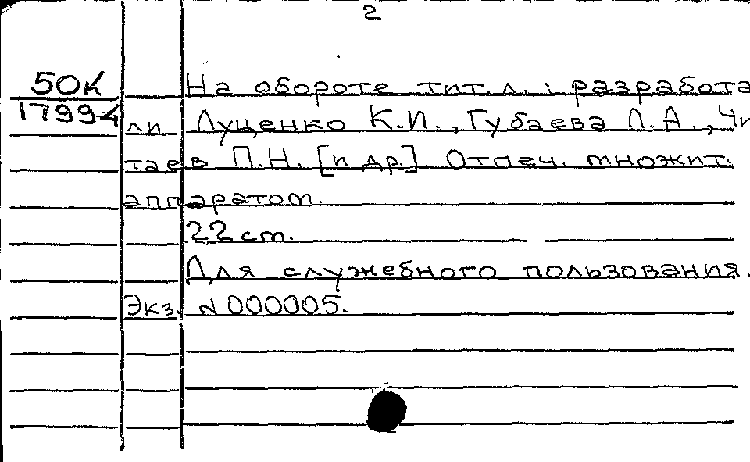 2
50К На обороте тит.л.: разработа
17994 ли Луценко К.И., Губаева Л.А., Чи
таев П.Н. [и др.] Отпеч. множит.
аппаратом.
22 см.
Для служебного пользования.
Экз. №000005.